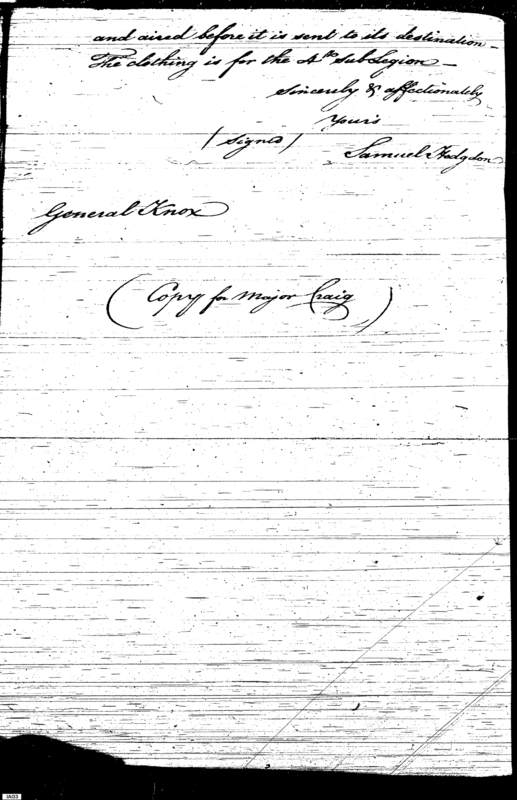 and aired before it is sent to its destination —
The clothing is for the 4th Sub Legion —
Sincerely & affectionately
Yours
/ Signed / Samuel Hodgdon
General Knox
( Copy for Major Craig )